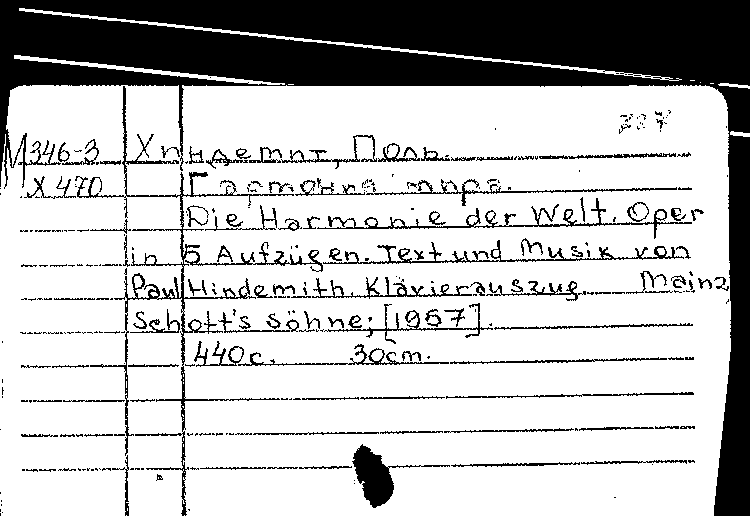 М346-3 Хиндемит, Поль.
Х 470 Гармония мира.
Die Harmonie der Welt. Oper
in 5 Aufzügen. Text und Musik von
Paul Hindemith. Klavierauszug. Mainz
Schott's Söhne; [1957].
440 с. 30cm.